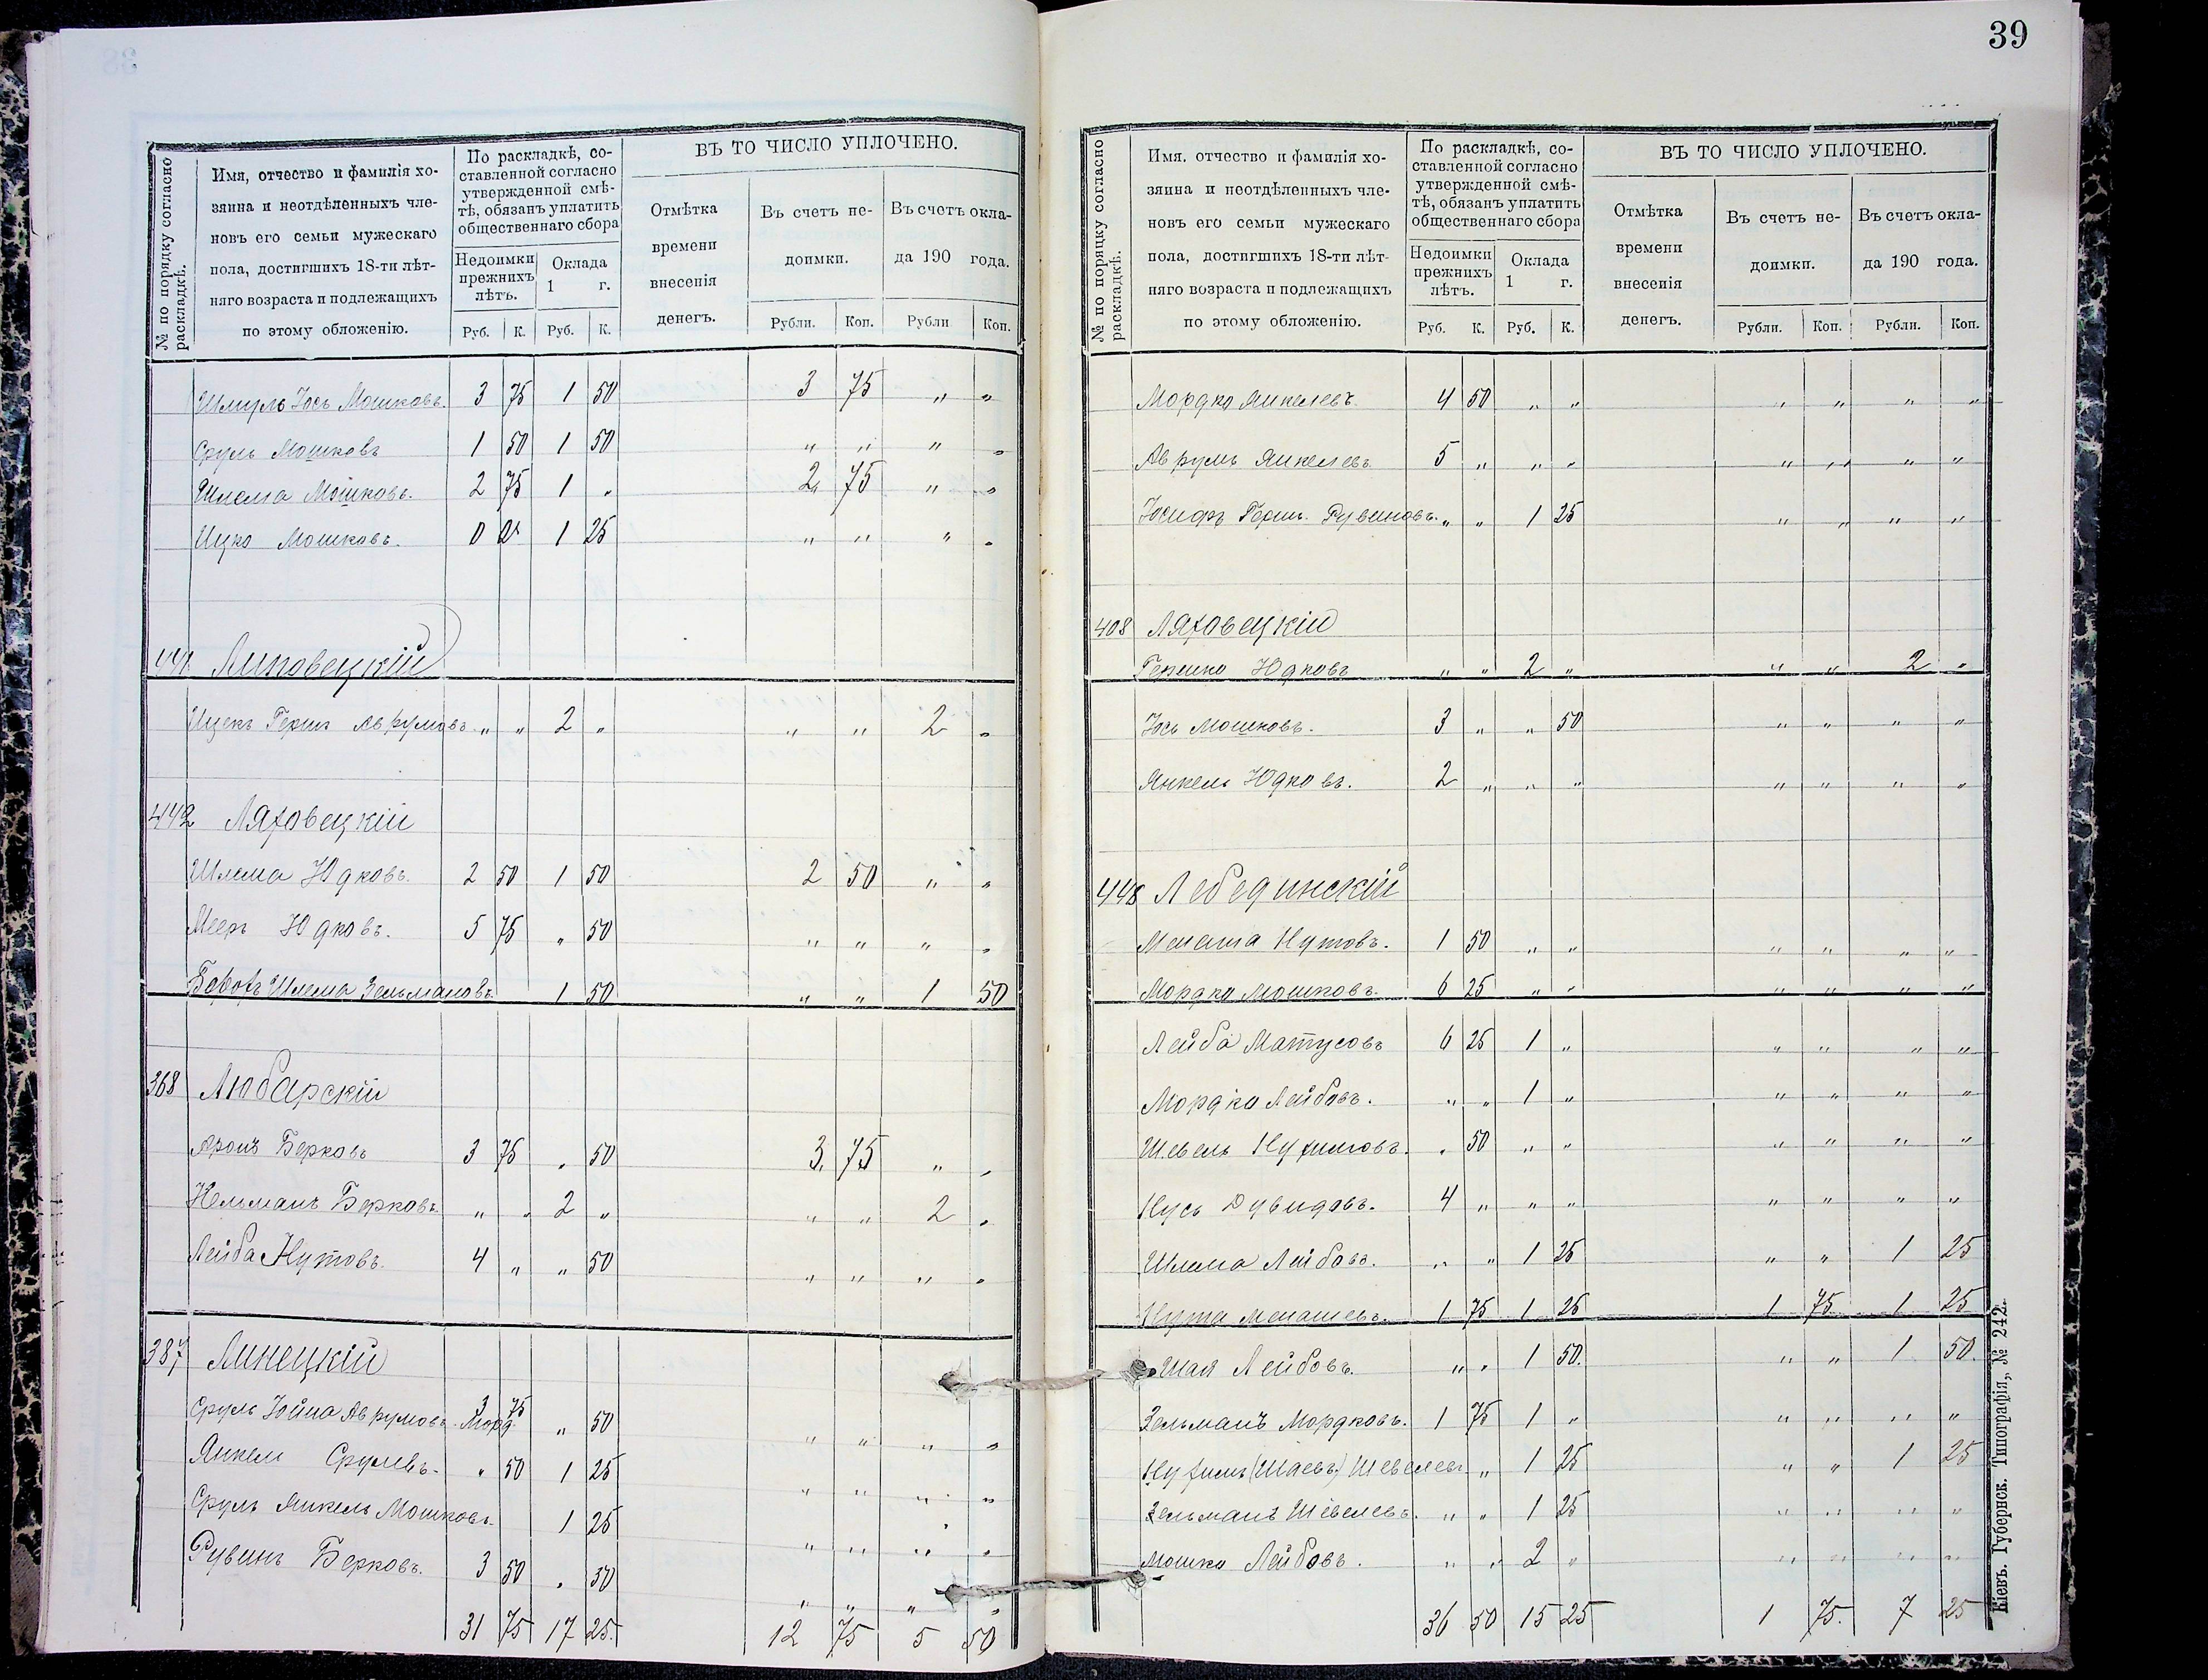 39
№ по порядку согласно раскладкѣ.
Имя, отчество и фамилія хо-
зяина и неотдѣленныхъ чле-
новъ его семьи мужескаго
пола, достигшихъ 18-ти лѣт-
няго возраста и подлежащихъ
по этому обложенію.
По раскладкѣ, со-
ставленной согласно
утвержденной смѣ-
тѣ, обязанъ уплатить
общественнаго сбора
Недоимки прежнихъ лѣтъ.
Оклада 1 г.
Руб. К. Руб. К.
ВЪ ТО ЧИСЛО УПЛОЧЕНО.
Отмѣтка
времени
внесенія
денегъ.
Въ счетъ не-
доимки.
Въ счетъ окла-
да 190 года.
Рубли. Коп. Рубли Коп.
Шмуль Іось Мошковъ. 3 75 1 50 3 75 „ „
Сруль Мошковъ 1 50 1 50 „ „ „ „
Шлема Мошковъ. 2 75 1 „ 2 75 „ „
Ицко Мошковъ. 1 25 „ „ „ „
441 Липовецкій
Ицекъ Герш Аврумовъ „ „ 2 „ „ „ 2 „
442 Ляховецкій
Шлема Юдковъ. 2 50 1 50 2 50 „ „
Мееръ Юдковъ. 5 75 „ 50 „ „ „ „
Шлема Зельмановъ. 1 50 „ „ 1 50
368 Любарскій
Аронъ Берковъ 3 75 „ 50 3 75 „ „
Кельманъ Берковъ. „ „ 2 „ „ „ 2 „
Лейба Нутовъ. 4 „ „ 50 „ „ „ „
387 Линецкій
Сруль Іойна Аврумовъ-Морд. 3 75 „ 50 „ „ „ „
Янкель Срулевъ. „ 50 1 25 „ „ „ „
Сруль Янкель Мошковъ. 1 25 „ „ „ „
Рувинъ Берковъ. 3 50 „ 50 „ „ „ „
31 75 17 25. 12 75 5 50
№ по порядку согласно раскладкѣ.
Имя. отчество и фамилія хо-
зяина и неотдѣленныхъ чле-
новъ его семьи мужескаго
пола, достигшихъ 18-ти лѣт-
няго возраста и подлежащихъ
по этому обложенію.
По раскладкѣ, со-
ставленной согласно
утвержденной смѣ-
тѣ, обязанъ уплатить
общественнаго сбора
Недоимки прежнихъ лѣтъ.
Оклада 1 г.
Руб. К. Руб. К.
ВЪ ТО ЧИСЛО УПЛОЧЕНО.
Отмѣтка
времени
внесенія
денегъ.
Въ счетъ не-
доимки.
Въ счетъ окла-
да 190 года.
Рубли. Коп. Рубли. Коп.
Мордко Янкелевъ 4 50 „ „ „ „ „ „
Аврумъ Янкелевъ 5 „ „ „ „ „ „ „
Іосифъ Герш. Рувиновъ. „ „ 1 25 „ „ „ „
408 Ляховецкій
Гершко Юдковъ „ „ 2 „ „ „ 2 „
Іось Мошковъ. 3 „ „ 50 „ „ „ „
Янкель Юдковъ. 2 „ „ „ „ „ „ „
448 Лебединскій
Менаша Нутовъ. 1 50 „ „ „ „ „ „
Мордко Мошковъ. 6 25 „ „ „ „ „ „
Лейба Матусовъ 6 25 1 „ „ „ „ „
Мордко Лейбовъ. „ „ 1 „ „ „ „ „
Шевель Нухимовъ. „ 50 „ „ „ „ „ „
Нусь Дувидовъ. 4 „ „ „ „ „ „ „
Шлема Лейбовъ. „ „ 1 25 „ „ 1 25
Нута Менашевъ. 1 75 1 25 1 75 1 25
Шая Лейбовъ. „ „ 1 50. „ „ 1 50.
Зельманъ Мордковъ. 1 75 1 „ „ „ „ „
Нухимъ (Шаевъ) Шевелевъ „ 1 25 „ „ 1 25
Зельманъ Шевелевъ. „ „ 1 25 „ „ „ „
Мошко Лейбовъ. „ „ 2 „ „ „ „ „
36 50 15 25 1 75. 7 25
Кіевъ. Губернск. Типографія, № 242.